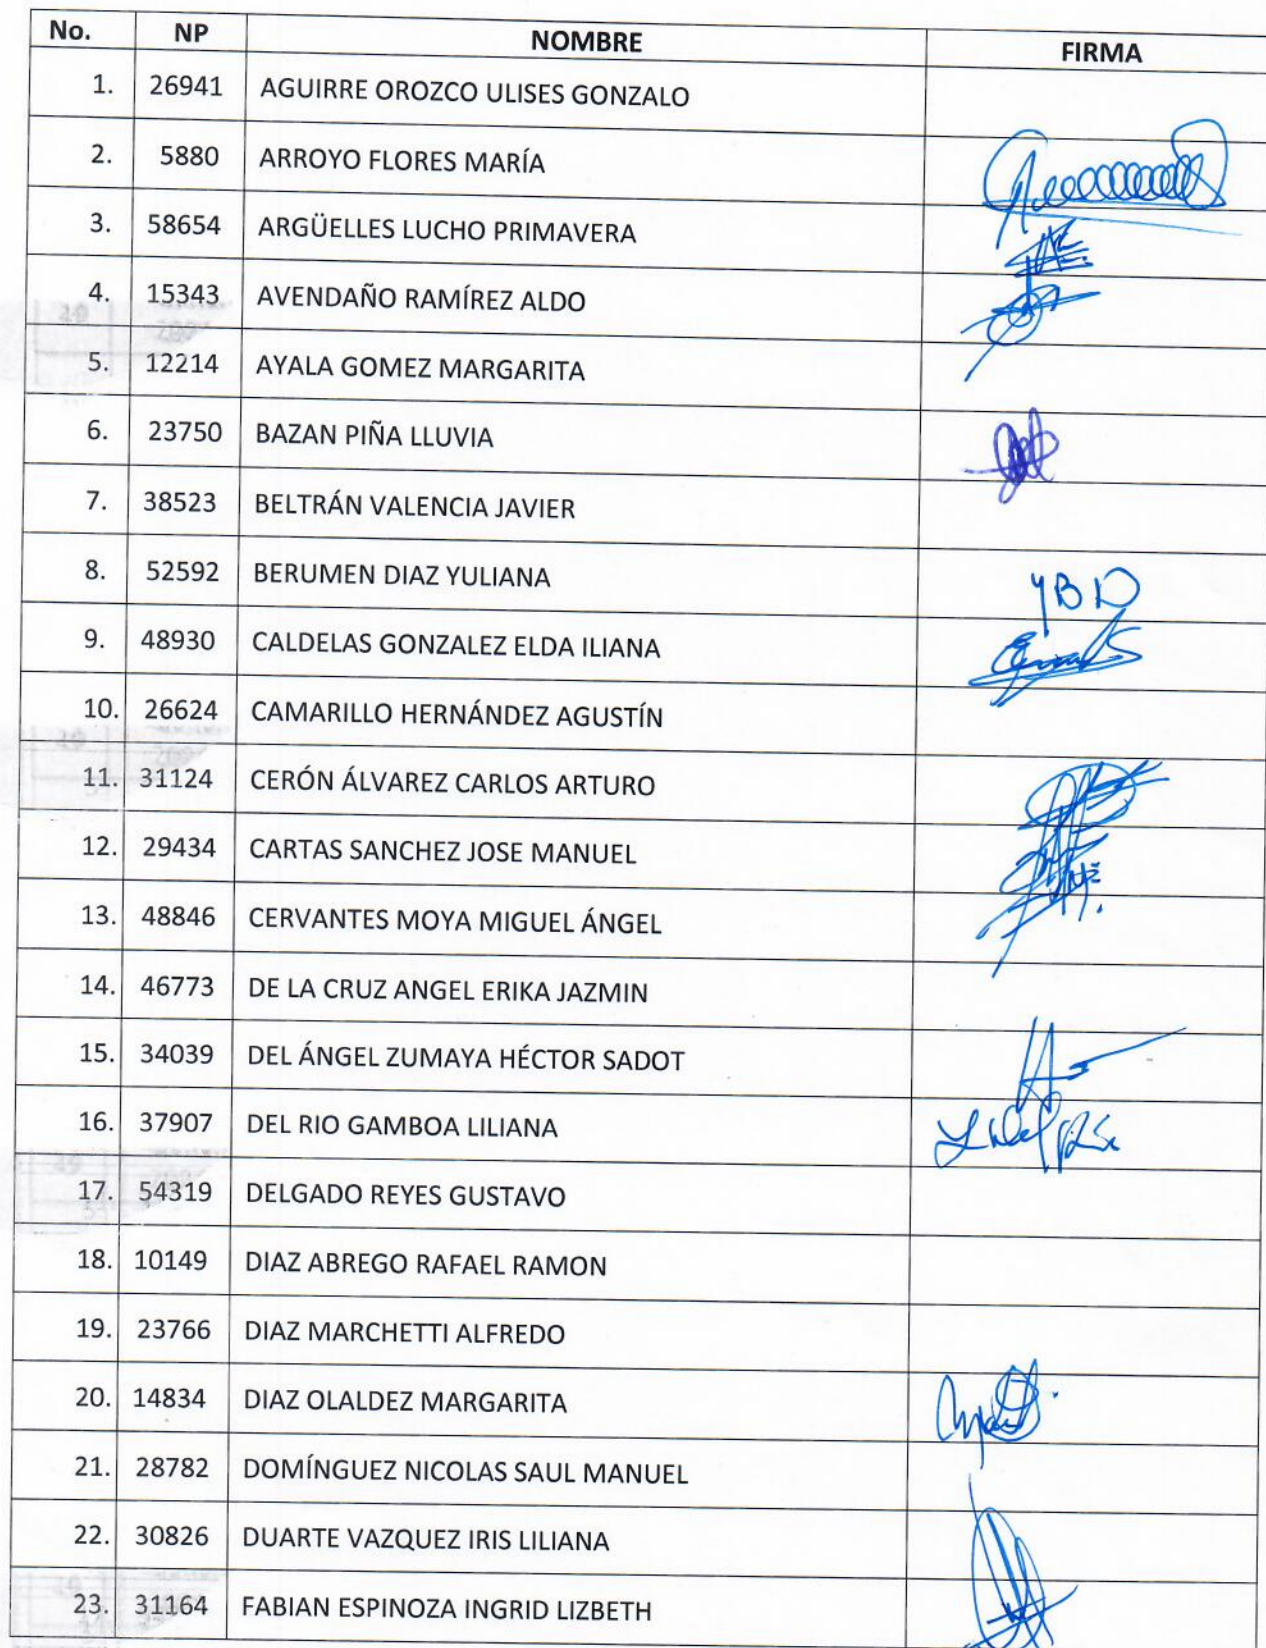 No. NP NOMBRE FIRMA
1. 26941 AGUIRRE OROZCO ULISES GONZALO
2. 5880 ARROYO FLORES MARÍA
3. 58654 ARGÜELLES LUCHO PRIMAVERA
4. 15343 AVENDAÑO RAMÍREZ ALDO
5. 12214 AYALA GOMEZ MARGARITA
6. 23750 BAZAN PIÑA LLUVIA
7. 38523 BELTRÁN VALENCIA JAVIER
8. 52592 BERUMEN DIAZ YULIANA YBD
9. 48930 CALDELAS GONZALEZ ELDA ILIANA
10. 26624 CAMARILLO HERNÁNDEZ AGUSTÍN
11. 31124 CERÓN ÁLVAREZ CARLOS ARTURO
12. 29434 CARTAS SANCHEZ JOSE MANUEL
13. 48846 CERVANTES MOYA MIGUEL ÁNGEL
14. 46773 DE LA CRUZ ANGEL ERIKA JAZMIN
15. 34039 DEL ÁNGEL ZUMAYA HÉCTOR SADOT
16. 37907 DEL RIO GAMBOA LILIANA
17. 54319 DELGADO REYES GUSTAVO
18. 10149 DIAZ ABREGO RAFAEL RAMON
19. 23766 DIAZ MARCHETTI ALFREDO
20. 14834 DIAZ OLALDEZ MARGARITA
21. 28782 DOMÍNGUEZ NICOLAS SAUL MANUEL
22. 30826 DUARTE VAZQUEZ IRIS LILIANA
23. 31164 FABIAN ESPINOZA INGRID LIZBETH